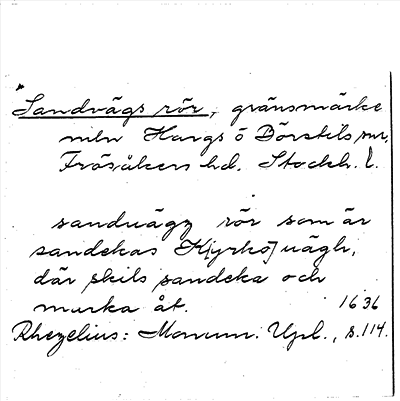 Sandvägs rör, gränsmärke
mln Hargs o Börstils snr,
Frösåkers hd. Stockh. l.
sanduägz rör som är
sandekas K[yrko]uägh,
där skils sandeka och
murka åt. 1636
Rhezelius: Monum. Upl., s. 114.